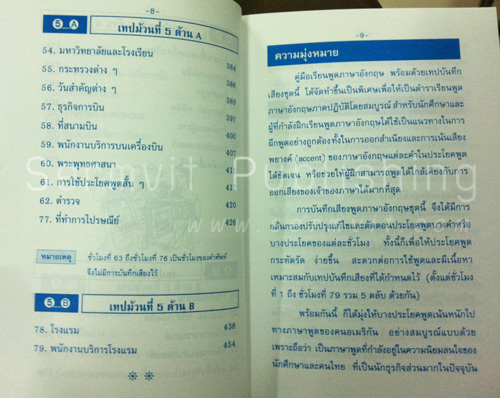 -8-
5_A เทปม้วนที่ 5 ด้าน A
54. มหาวิทยาลัยและโรงเรียน 384
55. กระทรวงต่าง ๆ 391
56. วันสำคัญต่าง ๆ
57. ธุรกิจการบิน
58. ที่สนามบิน
59. พนักงานบริการบนเครื่องบิน
60. พระพุทธศาสนา
61. การใช้ประโยคพูดสั้น ๆ
62. ตำรวจ 420
77. ที่ทำการไปรษณีย์ 426
หมายเหตุ ชั่วโมงที่ 63 ถึงชั่วโมงที่ 76 เป็นชั่วโมงของคำศัพท์
จึงไม่มีการบันทึกเสียงไว้
5_B เทปม้วนที่ 5 ด้าน B
78. โรงแรม 438
79. พนักงานบริการโรงแรม 454
-9-
ความมุ่งหมาย
คู่มือเรียนพูดภาษาอังกฤษ พร้อมด้วยเทปบันทึก
เสียงชุดนี้ ได้จัดทำขึ้นเป็นพิเศษเพื่อให้เป็นตำราเรียนพูด
ภาษาอังกฤษภาคปฏิบัติโดยสมบูรณ์ สำหรับนักศึกษาและ
ผู้ที่กำลังฝึกเรียนพูดภาษาอังกฤษได้ใช้เป็นแนวทางในการ
ฝึกพูดอย่างถูกต้องทั้งในการออกสำเนียงและการเน้นเสียง
พยางค์ (accent) ของภาษาอังกฤษแต่ละคำในประโยคพูด
ได้ชัดเจน หรือช่วยให้ผู้ฝึกสามารถพูดได้ใกล้เคียงกับการ
ออกเสียงของเจ้าของภาษาได้มากที่สุด
การบันทึกเสียงพูดภาษาอังกฤษชุดนี้ จึงได้มีการ
กลั่นกรองปรับปรุงแก้ไขและตัดตอนประโยคพูดบางคำหรือ
บางประโยคของแต่ละชั่วโมง ทั้งนี้ก็เพื่อให้ประโยคพูด
กระทัดรัด ง่ายขึ้น สะดวกต่อการใช้พูดและมีเนื้อหา
เหมาะสมกับเทปบันทึกเสียงที่ได้กำหนดไว้ (ตั้งแต่ชั่วโมง
ที่ 1 ถึง ชั่วโมงที่ 79 รวม 5 ตลับ ด้วยกัน)
พร้อมกันนี้ ก็ได้มุ่งให้บางประโยคพูดเน้นหนักไป
ทางภาษาพูดของคนอเมริกัน อย่างสมบูรณ์แบบด้วย
เพราะถือว่า เป็นภาษาพูดที่กำลังอยู่ในความนิยมสนใจของ
นักศึกษาและคนไทย ที่เป็นนักธุรกิจส่วนมากในปัจจุบัน